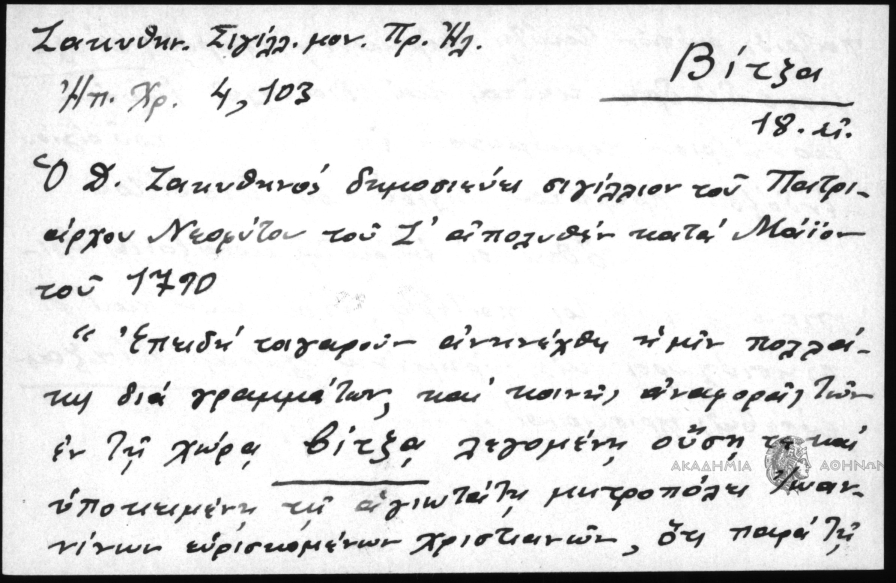 Ζακυθην. Σιγίλλ. μον. Πρ. Ἠλ.
Βίτζα
Ἠπ. Χρ. 4, 103
18. αἰ.
Ὁ Δ. Ζακυθηνός δημοσιεύει σιγίλλιον τοῦ Πατρι-
άρχου Νεοφύτου τοῦ Ζ' ἀπολυθέν κατά Μάϊον
τοῦ 1790
" Ἐπειδή τοιγαροῦν ἀνηνέχθη ἡμῖν πολλά-
κις διά γραμμάτων, καί κοινῆς ἀναφορᾶς τῶν
ἐν τῇ χώρᾳ Βίτζᾳ λεγομένῃ οὔσῃ τε καί
ΑΚΑΔΗΜΙΑ ΑΘΗΝΩΝ
ὑποκειμένῃ τῇ ἁγιωτάτῃ μητροπόλει Ἰωαν-
νίνων εὑρισκομένων χριστιανῶν, ὅτι παρά τῇ